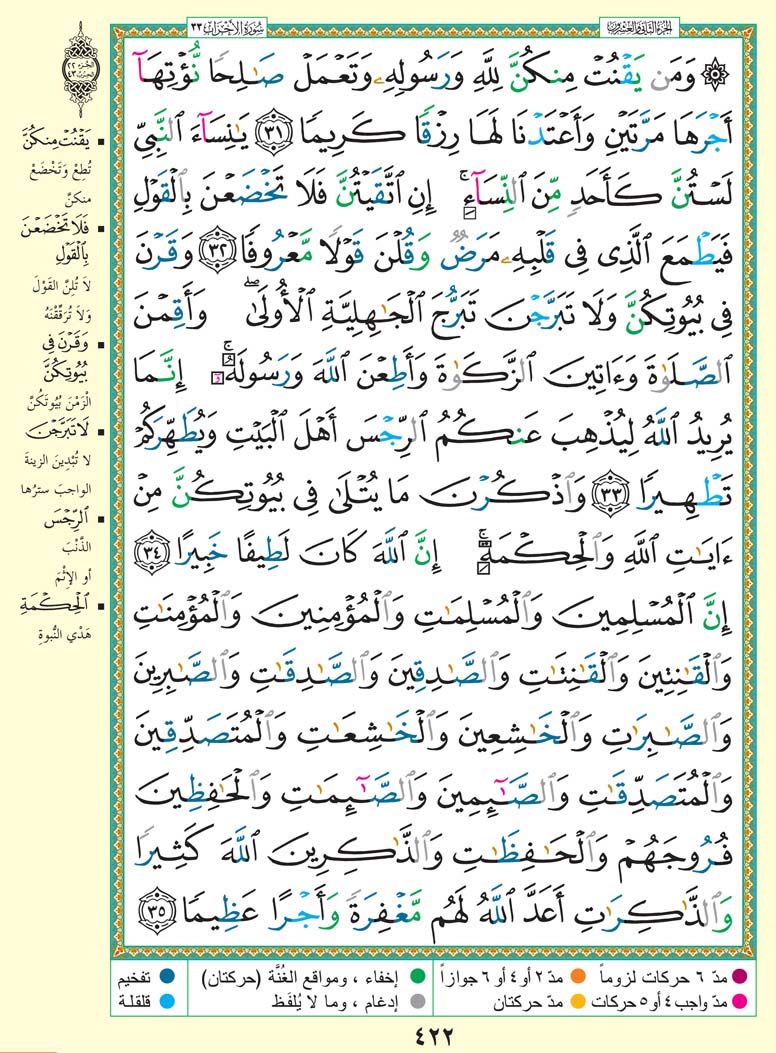 الجزء الثاني والعشرون
سورة الأحزاب ٣٣
۞ وَمَن يَقْنُتْ مِنكُنَّ لِلَّهِ وَرَسُولِهِۦ وَتَعْمَلْ صَٰلِحًا نُّؤْتِهَآ
أَجْرَهَا مَرَّتَيْنِ وَأَعْتَدْنَا لَهَا رِزْقًا كَرِيمًا ٣١ يَٰنِسَآءَ ٱلنَّبِيِّ
لَسْتُنَّ كَأَحَدٍ مِّنَ ٱلنِّسَآءِ ۚ إِنِ ٱتَّقَيْتُنَّ فَلَا تَخْضَعْنَ بِٱلْقَوْلِ
فَيَطْمَعَ ٱلَّذِى فِى قَلْبِهِۦ مَرَضٌ وَقُلْنَ قَوْلًا مَّعْرُوفًا ٣٢ وَقَرْنَ
فِى بُيُوتِكُنَّ وَلَا تَبَرَّجْنَ تَبَرُّجَ ٱلْجَٰهِلِيَّةِ ٱلْأُولَىٰ ۖ وَأَقِمْنَ
ٱلصَّلَوٰةَ وَءَاتِينَ ٱلزَّكَوٰةَ وَأَطِعْنَ ٱللَّهَ وَرَسُولَهُۥٓ ۚ إِنَّمَا
يُرِيدُ ٱللَّهُ لِيُذْهِبَ عَنكُمُ ٱلرِّجْسَ أَهْلَ ٱلْبَيْتِ وَيُطَهِّرَكُمْ
تَطْهِيرًا ٣٣ وَٱذْكُرْنَ مَا يُتْلَىٰ فِى بُيُوتِكُنَّ مِنْ
ءَايَٰتِ ٱللَّهِ وَٱلْحِكْمَةِ ۚ إِنَّ ٱللَّهَ كَانَ لَطِيفًا خَبِيرًا ٣٤
إِنَّ ٱلْمُسْلِمِينَ وَٱلْمُسْلِمَٰتِ وَٱلْمُؤْمِنِينَ وَٱلْمُؤْمِنَٰتِ
وَٱلْقَٰنِتِينَ وَٱلْقَٰنِتَٰتِ وَٱلصَّٰدِقِينَ وَٱلصَّٰدِقَٰتِ وَٱلصَّٰبِرِينَ
وَٱلصَّٰبِرَٰتِ وَٱلْخَٰشِعِينَ وَٱلْخَٰشِعَٰتِ وَٱلْمُتَصَدِّقِينَ
وَٱلْمُتَصَدِّقَٰتِ وَٱلصَّٰٓئِمِينَ وَٱلصَّٰٓئِمَٰتِ وَٱلْحَٰفِظِينَ
فُرُوجَهُمْ وَٱلْحَٰفِظَٰتِ وَٱلذَّٰكِرِينَ ٱللَّهَ كَثِيرًا
وَٱلذَّٰكِرَٰتِ أَعَدَّ ٱللَّهُ لَهُم مَّغْفِرَةً وَأَجْرًا عَظِيمًا ٣٥
الجزء ٢٢
الحزب ٤٣
▪ يَقْنُتْ مِنكُنَّ
تُطِعْ وَتَخْضَعْ
منكنّ
▪ فَلَا تَخْضَعْنَ
بِٱلْقَوْلِ
لاَ تُلِنَّ القَوْلَ
وَلاَ تُرَقِّقْنَهُ
▪ وَقَرْنَ فِى
بُيُوتِكُنَّ
الْزَمْنَ بُيُوتَكُنَّ
▪ لَا تَبَرَّجْنَ
لا تُبْدِينَ الزينةَ
الواجبَ سترُها
▪ ٱلرِّجْسَ
الذَّنْبَ
أو الإِثْمَ
▪ ٱلْحِكْمَةِ
هَدْيِ النُّبوةِ
مدّ ٦ حركات لزوماً
مدّ ٢ أو ٤ أو ٦ جوازاً
إخفاء ، ومواقع الغُنَّة (حركتان)
تفخيم
مدّ واجب ٤ أو ٥ حركات
مدّ حركتان
إدغام ، وما لا يُلفَظ
قلقلة
٤٢٢